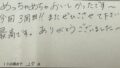 めっちゃめちゃおいしかったです〜
今回3回目!! またぜひこさせて下さい
最高です。ありがとうございました〜